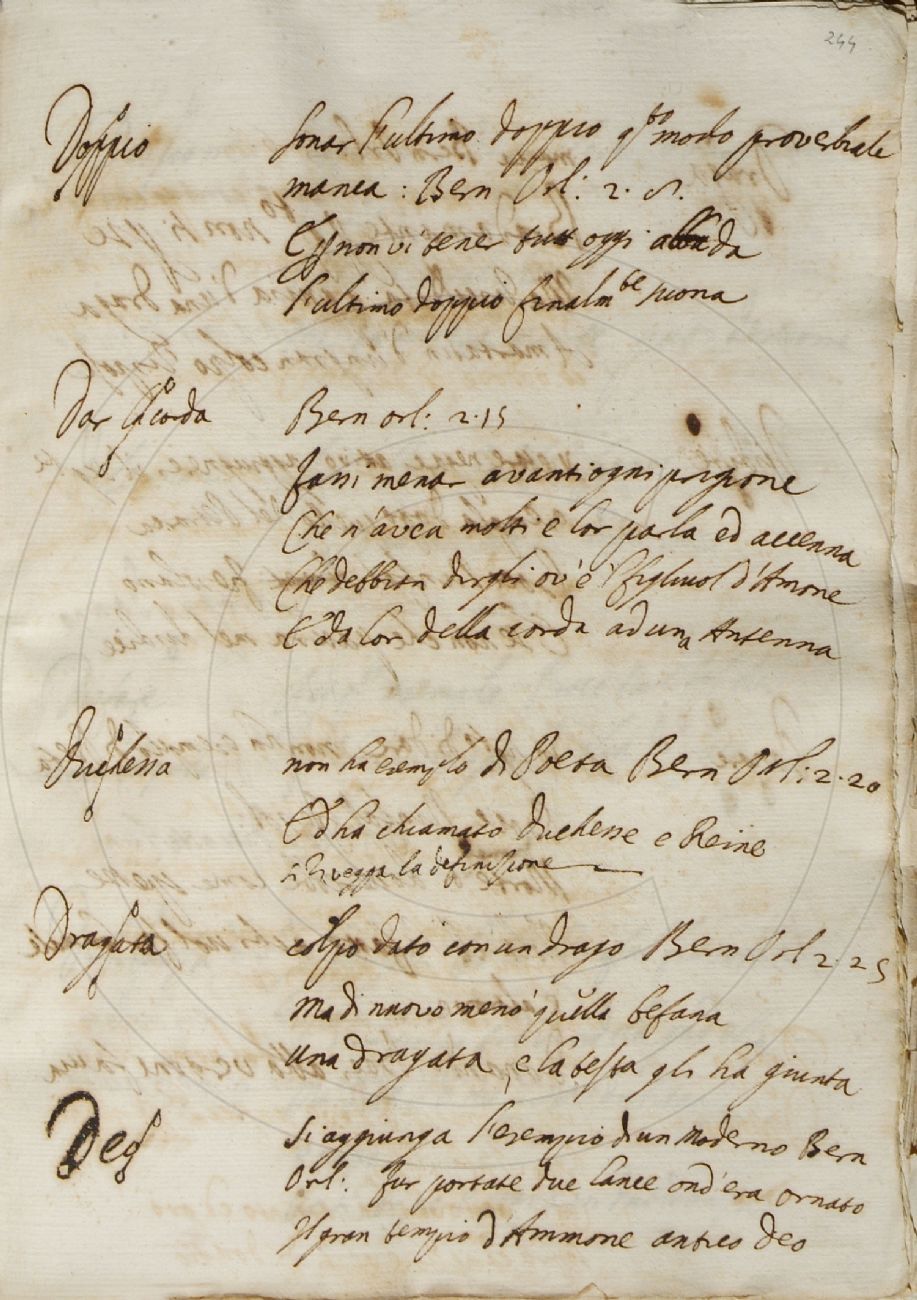 244
Doppio sonar l'ultimo doppio q.sto modo proverbiale
manca: Bern Orl: 2.
E non vi tener tutt oggi da
l'ultimo doppio finalm.te suona
Dar la corda Bern orl: 2.15
fassi menar avanti ogni prigione
Che n'avea molti e lor parla ed accenna
Che debbian dirgli ov'è 'l figliuol d'Amone
E da lor della corda ad una Antenna
Duchessa non ha esemplo di Poeta Bern Orl: 2.20
Ed ha chiamato duchesse e Reine
si rivegga la definizione
Dragata colpo dato con un drago Bern Orl 2.25
Ma di nuovo menò quella befana
una dragata, e la testa gli ha giunta
Deo si aggiunga l'esempio di un Moderno Bern
Orl: fur portate due lance ond'era ornato
Il gran tempio d'Ammone antico deo